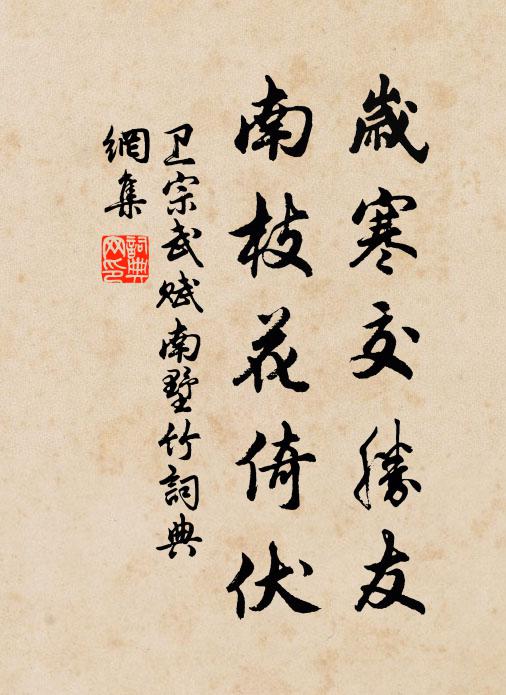 歲寒交勝友
南枝花倚伏
卫宗武赋南墅竹詞典
網集
詞典
网印